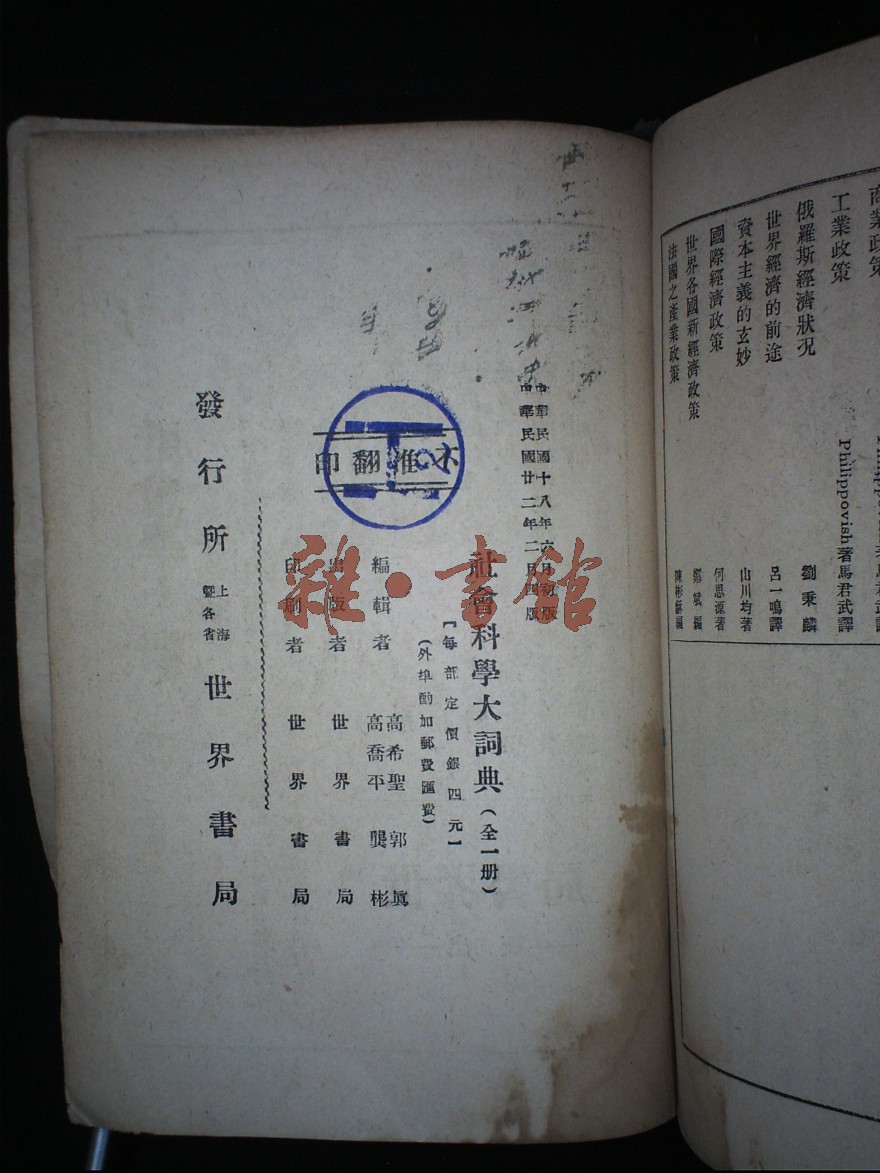 商業政策
Philippovish著 馬君武譯
工業政策
Philippovish著 馬君武譯
俄羅斯經濟狀況
劉秉麟
世界經濟的前途
呂一鳴譯
資本主義的玄妙
山川均著
國際經濟政策
何思源著
世界各國新經濟政策
鄭斌編
法國之產業政策
陳彬龢編
中華民國十八年六月初版
中華民國廿二年二月四版
社會科學大詞典(全一册)
【每部定價銀四元】
(外埠酌加郵費匯費)
編輯者
高希聖 郭眞
高喬平 龔彬
出版者 世界書局
印刷者 世界書局
不准翻印
發行所
上海
暨各省
世界書局
雜·書館